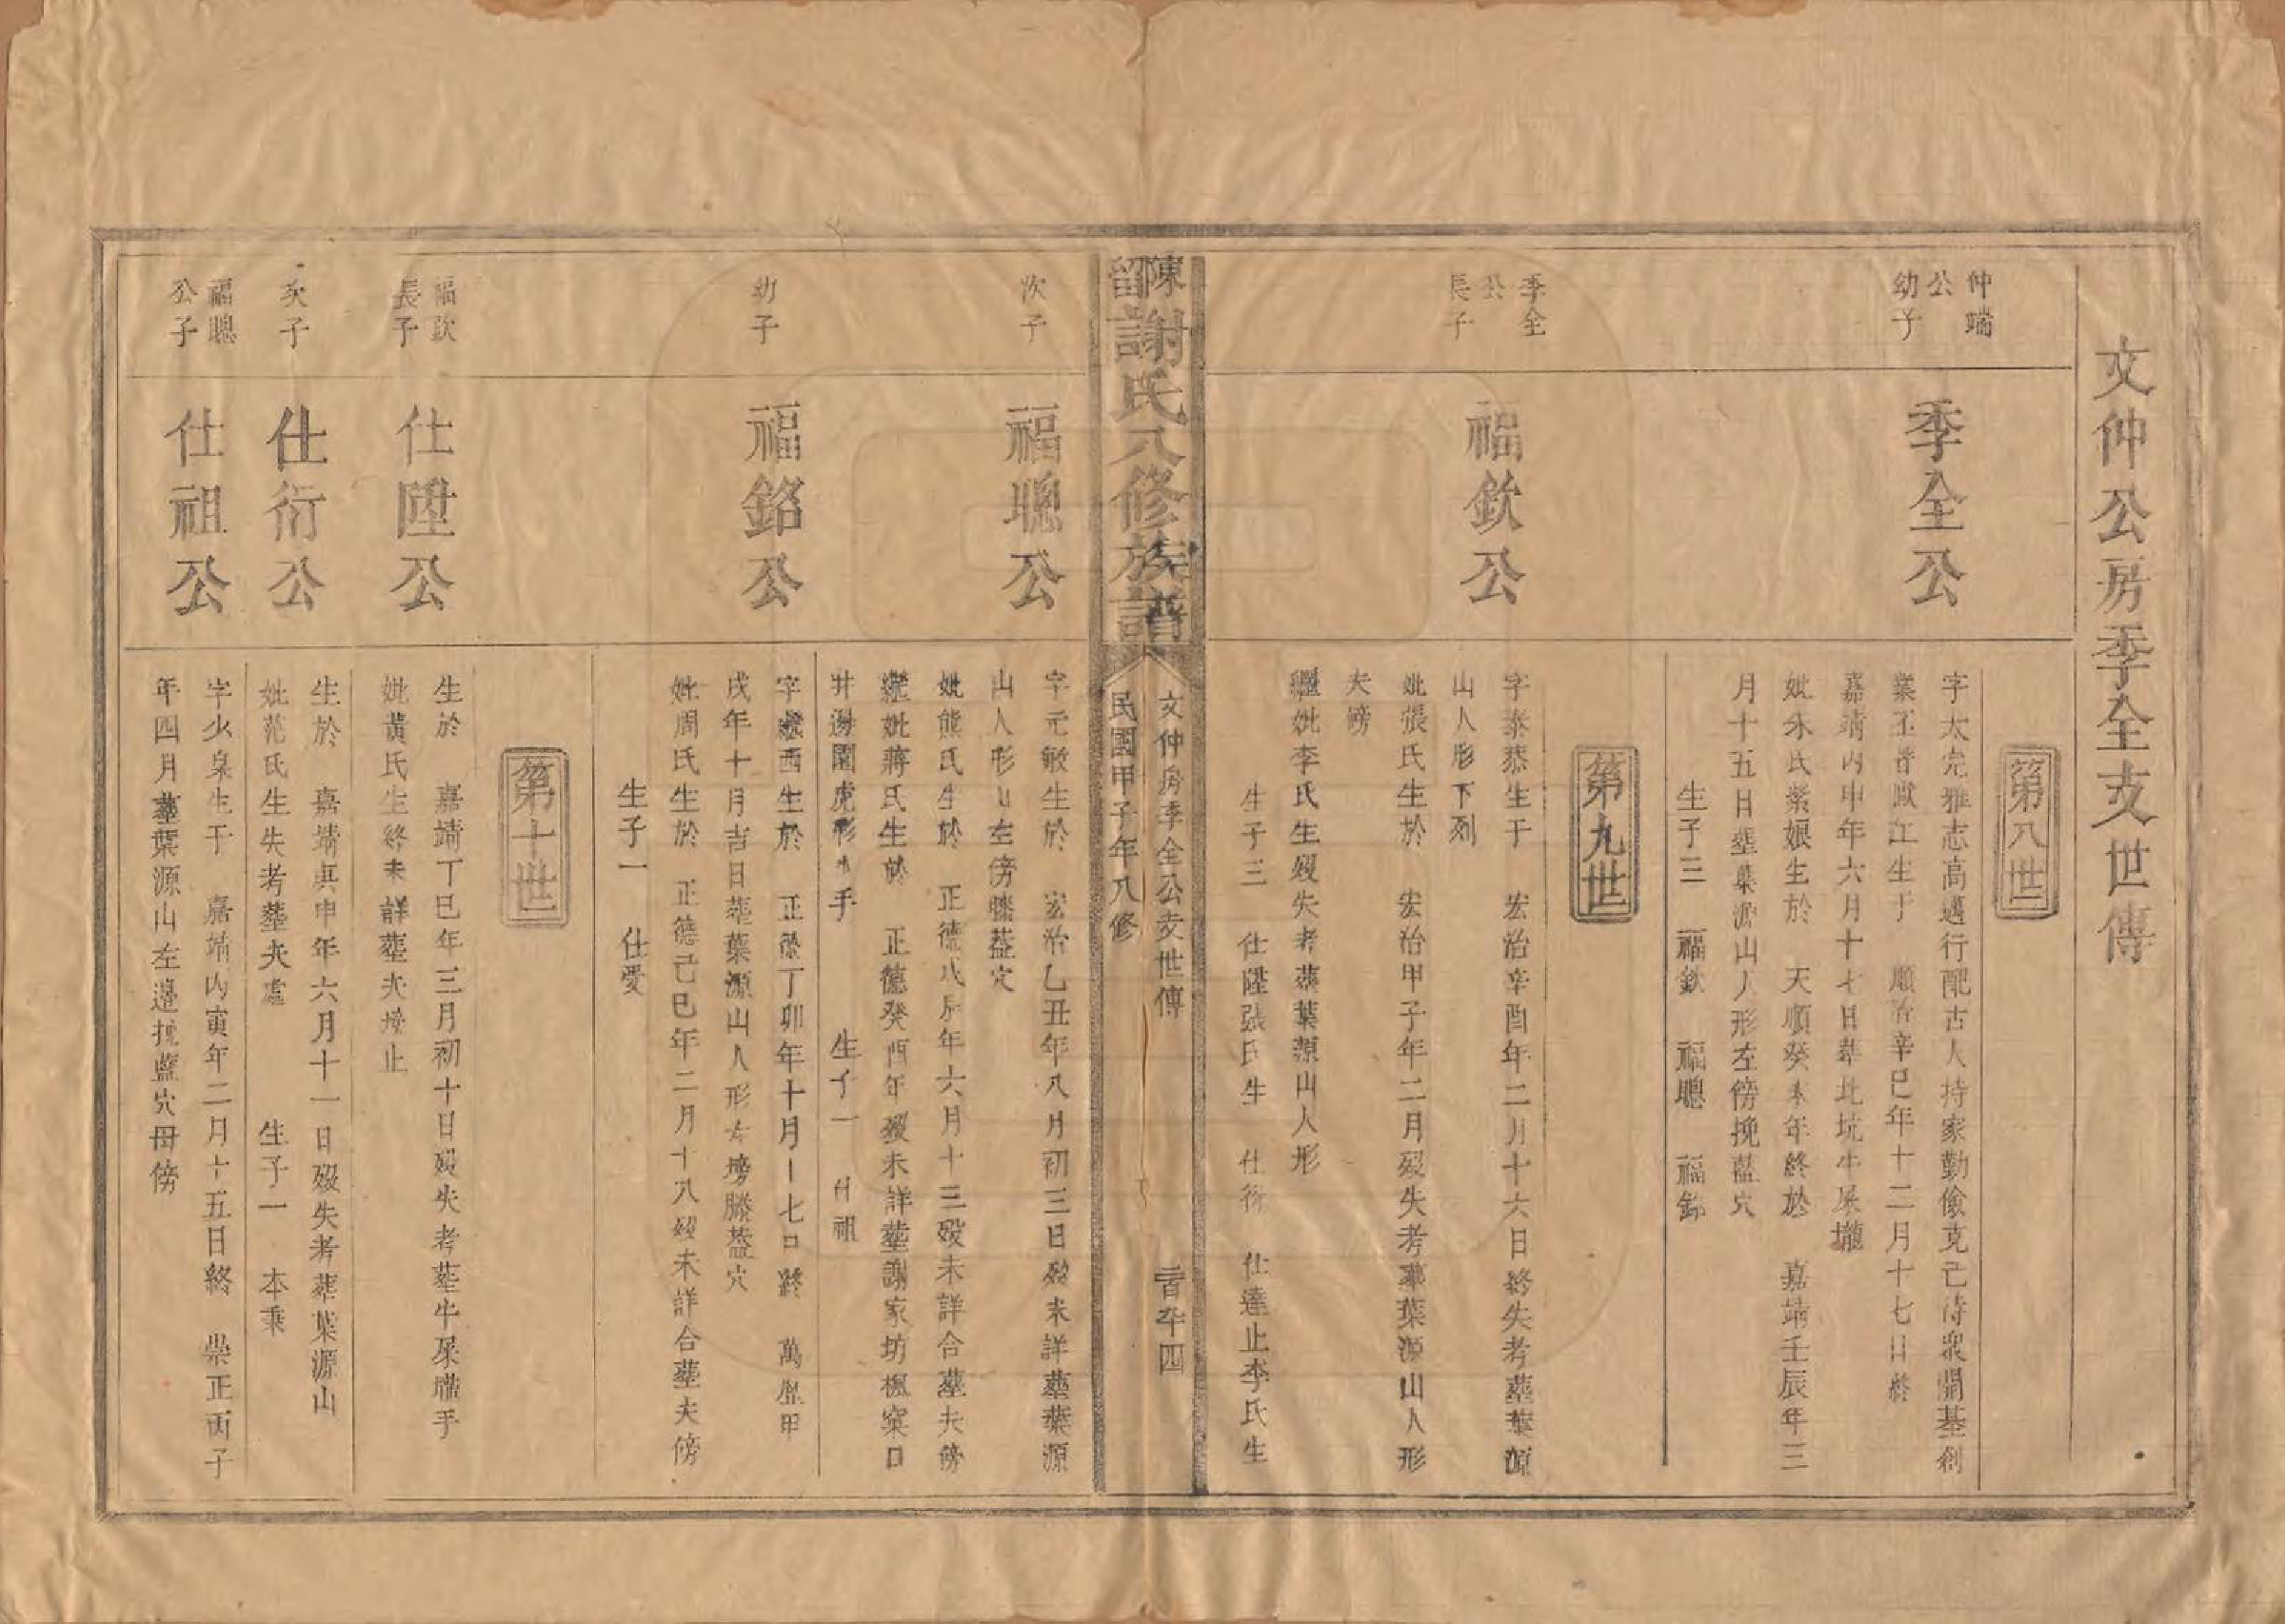 文仲公房季全支世傳
第八世
仲端公幼子
季全公
字太完雅志高邁行配古人持家勤儉克己待衆開基創
業丕晉歐江生于 順治辛巳年十二月十七日終
嘉靖丙申年六月十七日葬北坑牛屎壠
妣朱氏紫娘生於 天順癸未年終於 嘉靖壬辰年三
月十五日塟葉源山人形左傍挽藍穴
生子三 福欽 福聰 福銘
第九世
季全公長子
福欽公
字泰恭生于 宏治辛酉年二月十六日終失考塟葉源
山人形下列
妣張氏生於 宏治甲子年二月歿失考塟葉源山人形
夫塝
繼妣李氏生歿失考葬葉源山人形
生子三 仕陞張氏生 仕衍 仕達止李氏生
陳留謝氏八修族譜
文仲房季全公支世傳
民國甲子年八修
四
次子
福聰公
字元敏生於 宏治乙丑年八月初三日歿未詳塟葉源
山人形山左傍縢葢穴
妣熊氏生於 正德戊辰年六月十三歿未詳合塟夫傍
繼妣蔣氏生於 正德癸酉年歿未詳塟謝家坊楓窠口
井邊園虎形 手 生子一 仕祖
幼子
福銘公
字 西生於 正德丁卯年十月十七日終 萬歷甲
戌年十月吉日塟葉源山人形左塝縢葢穴
妣周氏生於 正德己巳年二月十八歿未詳合塟夫傍
生子一 仕愛
第十世
福欽長子
仕陞公
生於 嘉靖丁巳年三月初十日歿失考塟牛屎壠手
妣黃氏生終未詳塟夫塝止
次子
仕衍公
生於 嘉靖庚申年六月十一日歿失考葬葉源山
妣范氏生失考塟夫處 生子一 本秉
福聰公子
仕祖公
字少泉生于 嘉靖丙寅年二月十五日終 崇正丙子
年四月塟葉源山左邊挽藍穴毌傍